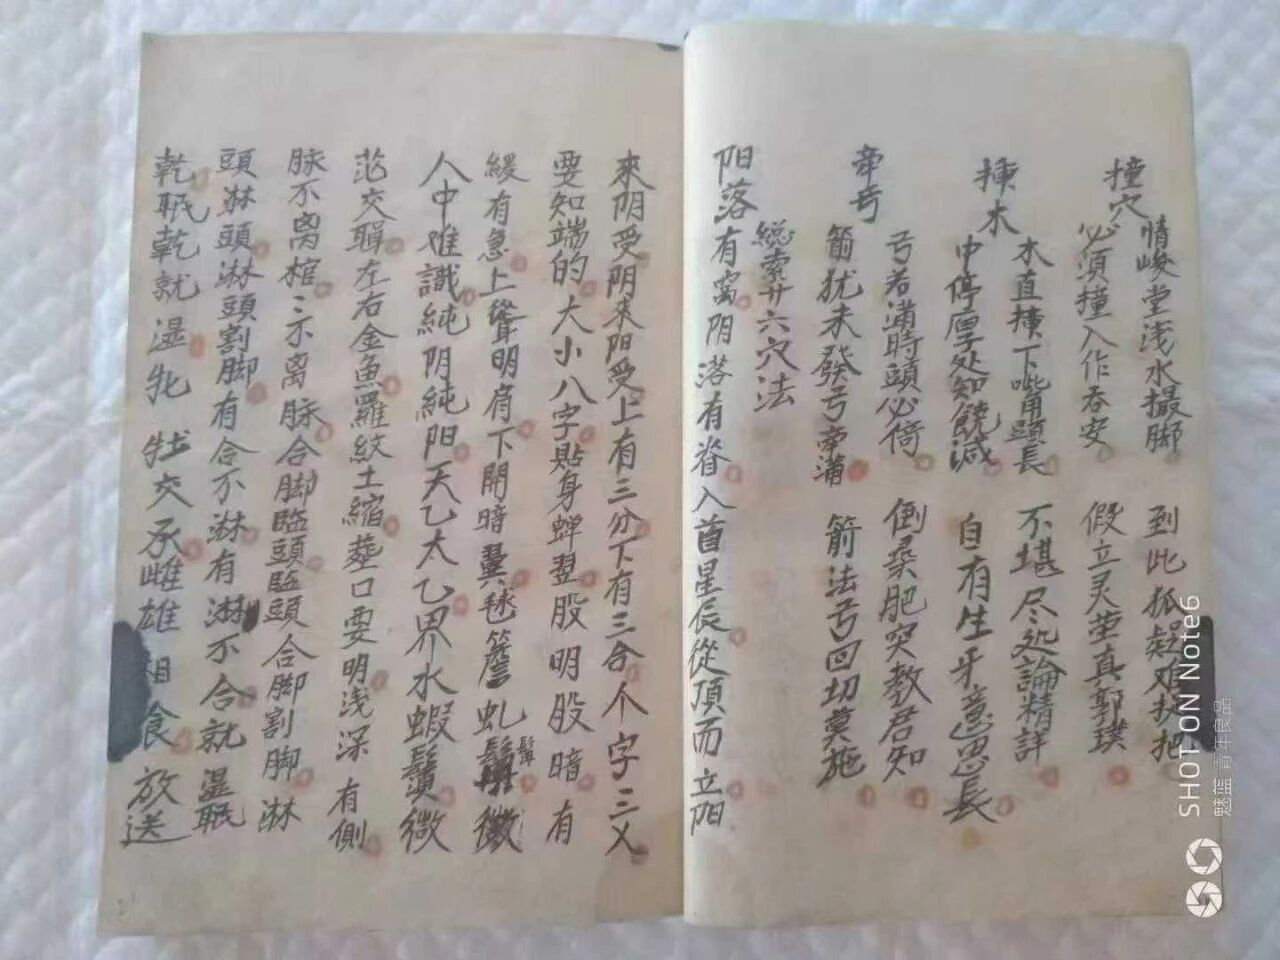 撞穴
情峻堂浅水撮脚 到此狐疑难捉把
必須撞入作吞安 假立灵莹真郭璞
揀木
木直揀下嘴角頭長 不堪尽处論精詳
中停厚处知饒減 自有生牙意思長
弓若满時頭必倚 倒桑肥突教君知
箭扰未發弓牵浦 箭法弓回切莫施
総索廿六穴法
阳落有窩阴落有脊入首星辰從頂而立阳
來阴受阴來阳受上有三分下有三合个字三乂
要知端的大小八字貼身蝉翌股明股暗有
緩有急上聳明肩下開暗翼毬簷虬鬚微
人中难識純阴純阳天乙太乙界水蝦鬚微
茫交聑左右金魚羅紋土縮塟口要明浅深有側
脉不离棺棺示离脉合脚臨頭臨頭合脚割脚淋
頭淋頭淋頭割脚有合不淋有淋不合就湿眂
乾眂乾就湿牝牡交承雌雄相食放送
SHOT ON Note6
魅蓝青年良品